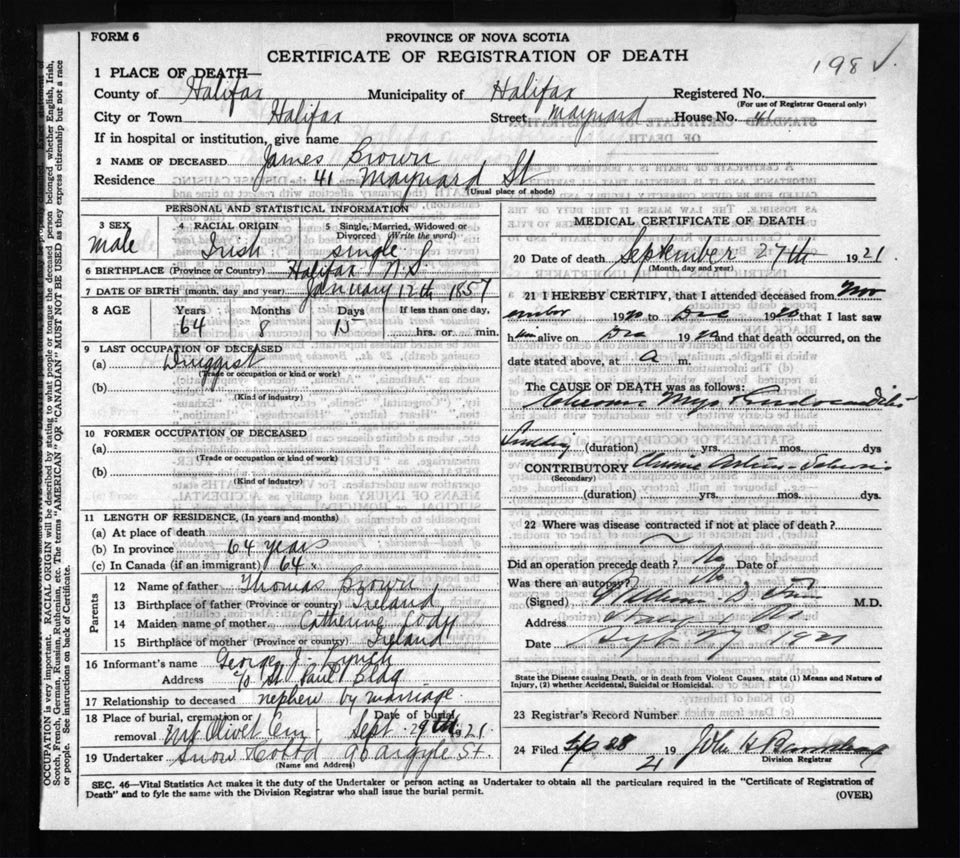 FORM 6
PROVINCE OF NOVA SCOTIA
CERTIFICATE OF REGISTRATION OF DEATH
198 ✓.
1 PLACE OF DEATH—
County of Halifax Municipality of Halifax Registered No.
(For use of Registrar General only)
City or Town Halifax Street Maynard House No. 41
If in hospital or institution, give name
2 NAME OF DECEASED James Brown
Residence 41 Maynard St
(Usual place of abode)
PERSONAL AND STATISTICAL INFORMATION
3 SEX 4 RACIAL ORIGIN 5 Single, Married, Widowed or Divorced (Write the word)
Male Irish Single
6 BIRTHPLACE (Province or Country) Halifax N.S.
7 DATE OF BIRTH (month, day and year) January 12th 1857
8 AGE Years Months Days If less than one day,
64 8 15 hrs. or min.
9 LAST OCCUPATION OF DECEASED
(a) Druggist
(Trade or occupation or kind of work)
(b)
(Kind of industry)
10 FORMER OCCUPATION OF DECEASED
(a)
(Trade or occupation or kind of work)
(b)
(Kind of industry)
11 LENGTH OF RESIDENCE, (In years and months)
(a) At place of death
(b) In province 64 years
(c) In Canada (if an immigrant) 64 "
Parents
12 Name of father Thomas Brown
13 Birthplace of father (Province or country) Ireland
14 Maiden name of mother Catherine Cody
15 Birthplace of mother (Province or country) Ireland
16 Informant's name George J. Lynch
Address c/o St. Paul Bldg
17 Relationship to deceased nephew by marriage
18 Place of burial, cremation or removal Mt Olivet Cem. Date of burial Sept. 29th 1921
19 Undertaker Snow Co Ltd 90 Argyle St
(Name and Address)
MEDICAL CERTIFICATE OF DEATH
20 Date of death September 27th 1921
(Month, day and year)
21 I HEREBY CERTIFY, that I attended deceased from Nov
ember 1920 to Dec 1920 that I last saw
him alive on Dec 1920 and that death occurred, on the
date stated above, at a m.
The CAUSE OF DEATH was as follows:
Chronic Myo
(duration) yrs. mos. dys
CONTRIBUTORY Chronic
(Secondary)
(duration) yrs. mos. dys.
22 Where was disease contracted if not at place of death?
Did an operation precede death? No Date of
Was there an autopsy? No
(Signed) M.D.
Address
Date Sept 27th 1921
State the Disease causing Death, or in death from Violent Causes, state (1) Means and Nature of
Injury, (2) whether Accidental, Suicidal or Homicidal.
23 Registrar's Record Number
24 Filed Sep 28 1921 John
Division Registrar
SEC. 46—Vital Statistics Act makes it the duty of the Undertaker or person acting as Undertaker to obtain all the particulars required in the "Certificate of Registration of
Death" and to fyle the same with the Division Registrar who shall issue the burial permit.
(OVER)